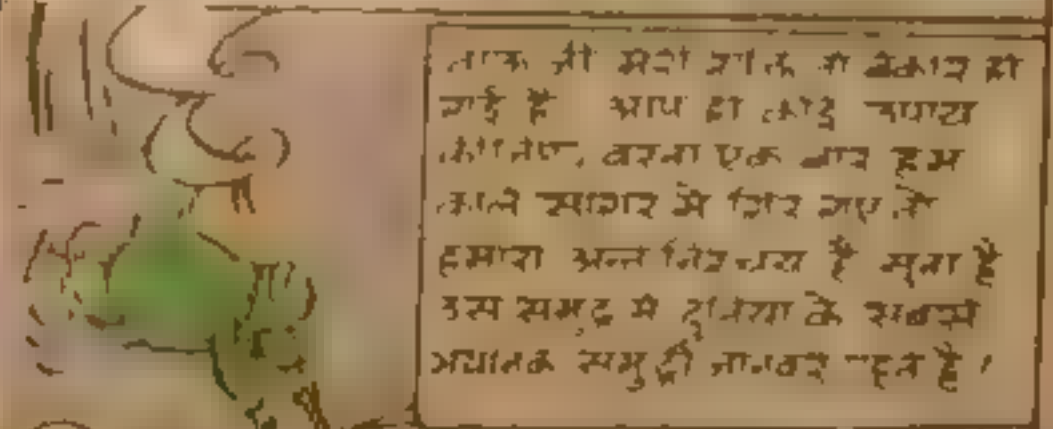 जी मेरी शक्ति भी बेकार हो
गई है आप ही कोई उपाय
कीजिए, वरना एक बार हम
काले सागर में गिर गए तो
हमारा अन्त निश्चय है सुना है
उस समुद्र में दुनिया के सबसे
भयानक समुद्री जानवर रहते है।